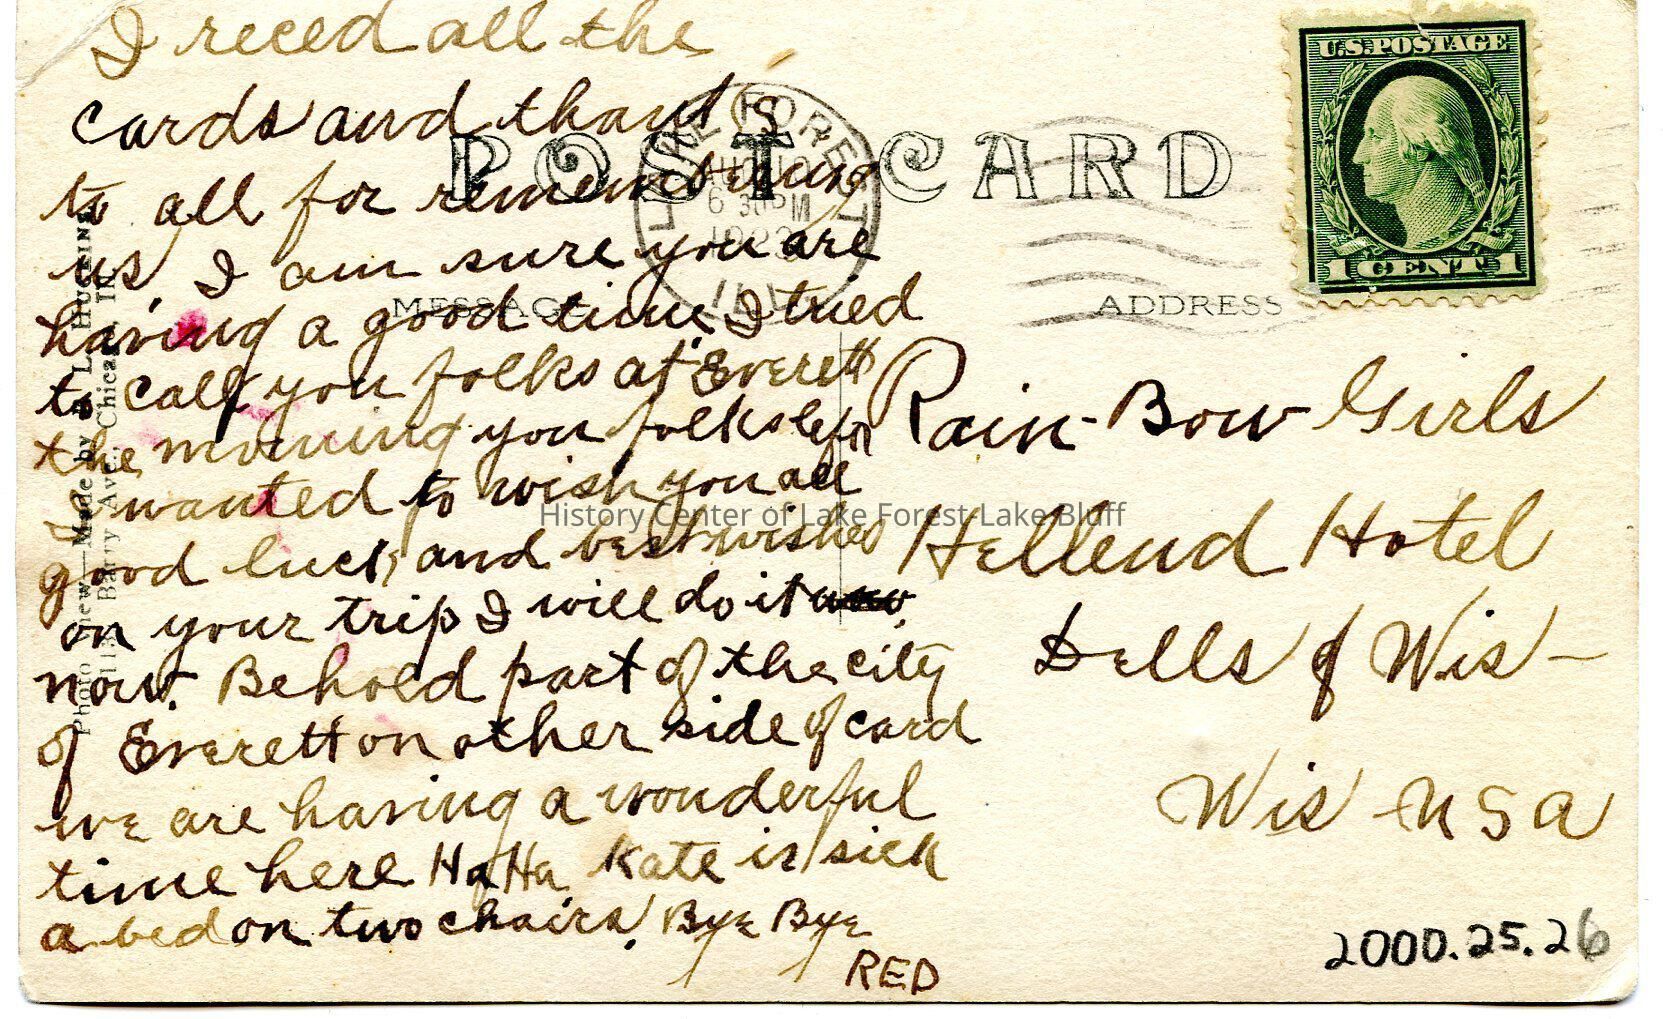 I reced all the
cards and thanks
to all for remembering
us I am sure you are
having a good time I tried
to call you folks at Everett
the morning you folks left
I wanted to wish you all
good luck and best wishes
on your trip I will do it
now. Behold part of the city
of Everett on other side of card
we are having a wonderful
time here Ha Ha Kate is sick
a bed on two chairs! Bye Bye
RED
POST CARD
MESSAGE
ADDRESS
LAKE FOREST
AUG 10
6 30 P M
1922
ILL
U.S. POSTAGE
1 CENT 1
Rain-Bow Girls
Hellend Hotel
Dells of Wis-
Wis U S A
Photo View—Made by L. Huggins
Barry Ave., Chicago, Ill.
History Center of Lake Forest-Lake Bluff
2000.25.26